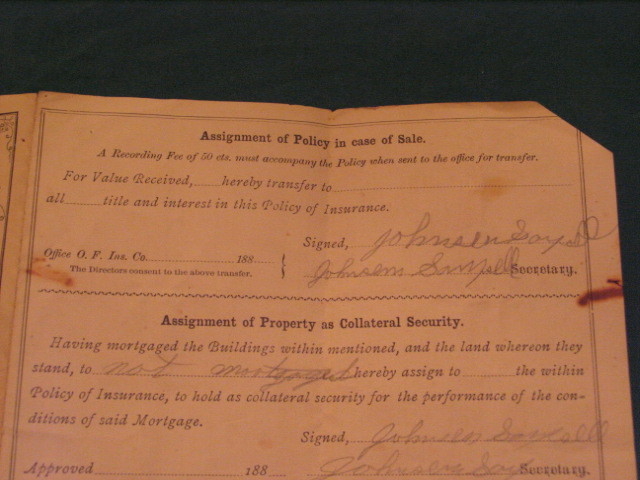 Assignment of Policy in case of Sale.
A Recording Fee of 50 cts. must accompany the Policy when sent to the office for transfer.
For Value Received, hereby transfer to
all title and interest in this Policy of Insurance.
Signed, Johnsen
Office O. F. Ins. Co. 188
The Directors consent to the above transfer.
Johnsem Secretary.
Assignment of Property as Collateral Security.
Having mortgaged the Buildings within mentioned, and the land whereon they
stand, to not mortgaged hereby assign to the within
Policy of Insurance, to hold as collateral security for the performance of the con-
ditions of said Mortgage.
Signed, Johnsen
Approved 188 Johnsen Secretary.